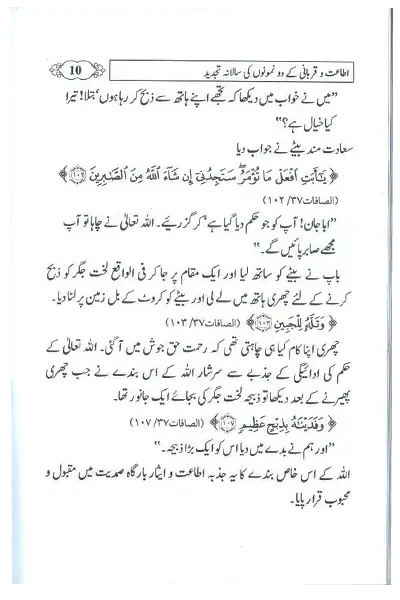 اطاعت و قربانی کے دو نمونوں کی سالانہ تجدید
10
”میں نے خواب میں دیکھا کہ تجھے اپنے ہاتھ سے ذبح کر رہا ہوں‘ بتلا! تیرا
کیا خیال ہے؟“
سعادت مند بیٹے نے جواب دیا
﴿ يَٰٓأَبَتِ ٱفۡعَلۡ مَا تُؤۡمَرُۖ سَتَجِدُنِيٓ إِن شَآءَ ٱللَّهُ مِنَ ٱلصَّٰبِرِينَ ١٠٢ ﴾
(الصافات۳۷/ ۱۰۲)
”ابا جان! آپ کو جو حکم دیا گیا ہے‘ کر گزریے۔ اللہ تعالیٰ نے چاہا تو آپ
مجھے صابر پائیں گے۔“
باپ نے بیٹے کو ساتھ لیا اور ایک مقام پر جا کر فی الواقع لخت جگر کو ذبح
کرنے کے لئے چھری ہاتھ میں لے لی اور بیٹے کو کروٹ کے بل زمین پر لٹا دیا۔
﴿ وَتَلَّهُۥ لِلۡجَبِينِ ١٠٣ ﴾ (الصافات۳۷/ ۱۰۳)
چھری اپنا کام کیا ہی چاہتی تھی کہ رحمت حق جوش میں آ گئی۔ اللہ تعالیٰ کے
حکم کی ادائیگی کے جذبے سے سرشار اللہ کے اس بندے نے جب چھری
پھیرنے کے بعد دیکھا تو ذبیحہ لخت جگر کی بجائے ایک جانور تھا۔
﴿ وَفَدَيۡنَٰهُ بِذِبۡحٍ عَظِيمٖ ١٠٧ ﴾ (الصافات۳۷/ ۱۰۷)
”اور ہم نے بدے میں دیا اس کو ایک بڑا ذبیحہ۔“
اللہ کے اس خاص بندے کا یہ جذبہ اطاعت و ایثار بارگاہ صمدیت میں مقبول و
محبوب قرار پایا۔